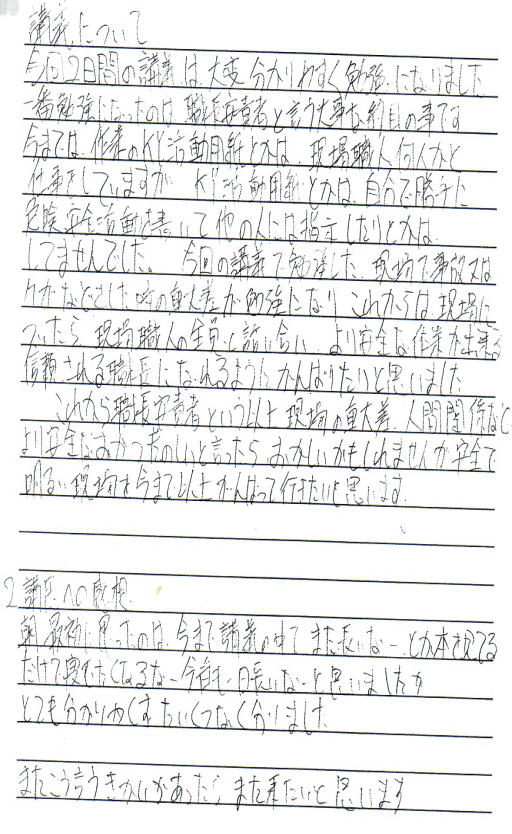 講義について
今回2日間の講義は大変分かりやすく勉強になりました
一番勉強になったのは職長安責者と言う大事な約目の事です
今までは、作業のKY活動用紙とかは、現場職人何人かと
仕事をしていますが KY活動用紙とかは自分で勝手に
危険安全活動を書いて他の人には指示したりとかは
してませんでした。 今回の講義で勉強した、現場で事故又は
けがなどをした時の重大差が勉強になり これからは現場に
ついたら 現場職人の全員と話い合い より安全な作業が出来る
信頼される職長になれるようにがんばりたいと思いました
これから職長安責者という以上現場の重大差、人間関係など
より安全なおかつたのしいと言ったら おかしいかもしれませんが安全で
明るい現場を今まで以上がんばって行きたいと思います
2 講師への感想
朝最初に思ったのは、今まで講義の中で また長いなーとか本を見てる
だけで寝むたくなるなー今日も一日長いなーと思いましたが
とても分かりやくすたいくつなく分りました
またこう言うきかいがあったら また来たいと思います